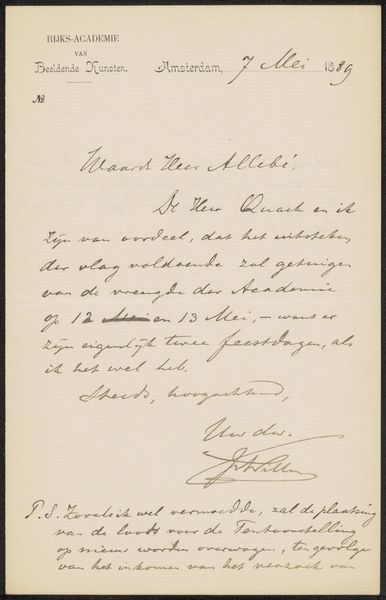 RIJKS-ACADEMIE
VAN
Beeldende Kunsten.
Amsterdam, 7 Mei 1889
No.
Waarde Heer Allebé.
De Heer Quack en ik
zijn van oordeel, dat het uitsteken
der vlag voldoende zal getuigen
van de vreugde der Academie
op 12 Mei en 13 Mei, – want er
zijn eigenlijk twee feestdagen, als
ik het wel heb.
Steeds, hoogachtend,
Uw dw.
P.S. Zooals ik wel vermoedde, zal de plaatsing
van de loods voor de Tentoonstelling
op nieuw worden overwogen, ten gevolge
van het inkomen van het verzoek van